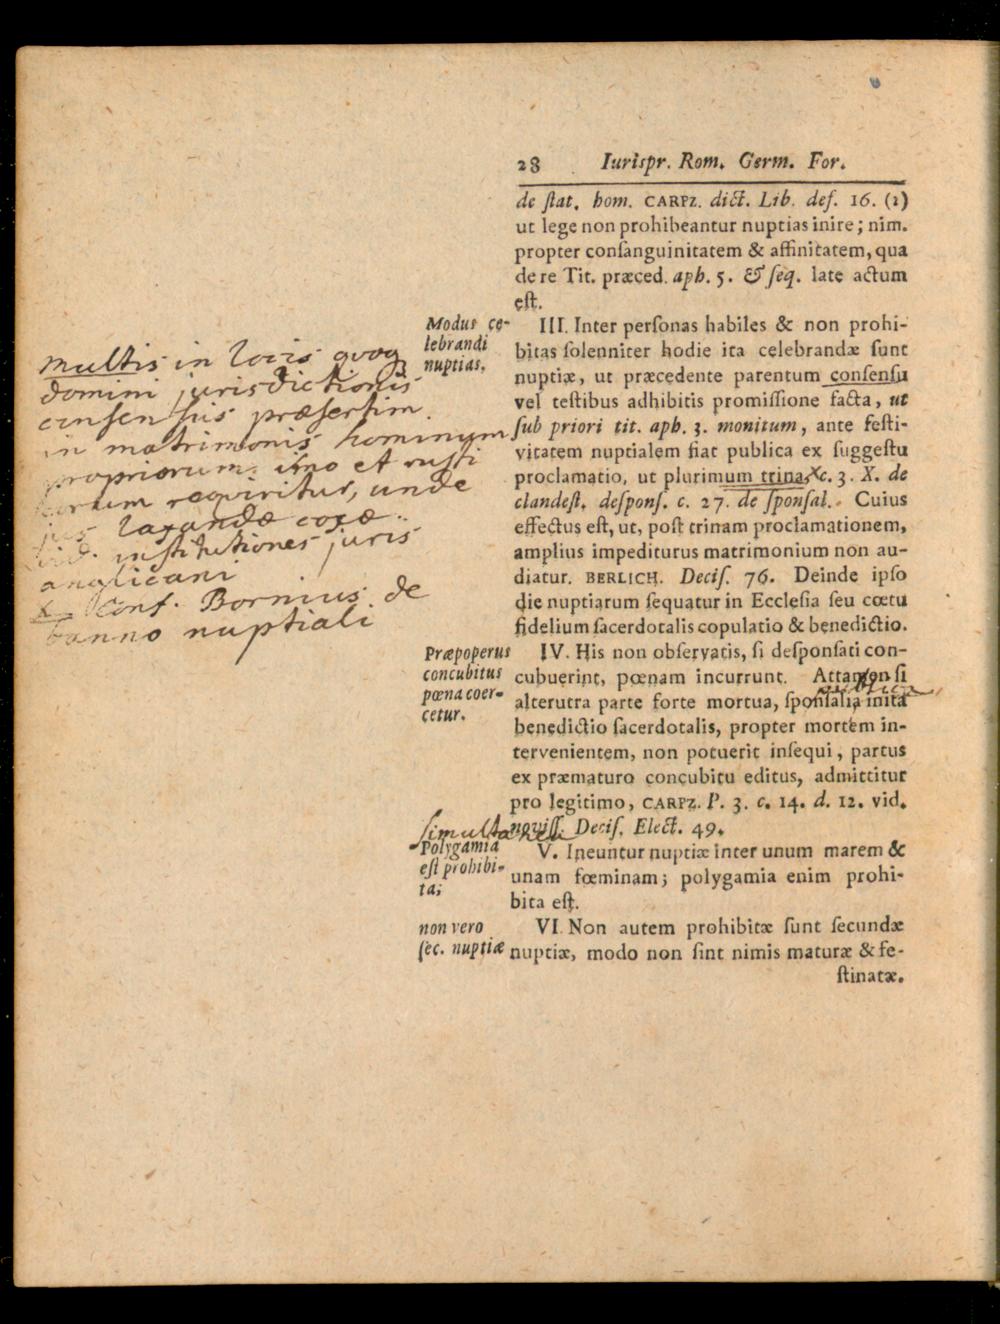 28 Iurispr. Rom. Germ. For.
de ſtat. hom. CARPZ. dict. Lib. def. 16. (2)
ut lege non prohibeantur nuptias inire; nim.
propter conſanguinitatem & affinitatem, qua
de re Tit. præced. aph. 5. & ſeq. late actum
eſt.
Modus ce-
lebrandi
nuptias.
III. Inter perſonas habiles & non prohi-
bitas ſolenniter hodie ita celebrandæ ſunt
nuptiæ, ut præcedente parentum conſenſu
vel teſtibus adhibitis promiſſione facta, ut
ſub priori tit. aph. 3. monitum, ante feſti-
vitatem nuptialem fiat publica ex ſuggeſtu
proclamatio, ut plurimum trina, c. 3. X. de
clandeſt. deſponſ. c. 27. de ſponſal. Cuius
effectus eſt, ut, poſt trinam proclamationem,
amplius impediturus matrimonium non au-
diatur. BERLICH. Deciſ. 76. Deinde ipſo
die nuptiarum ſequatur in Eccleſia ſeu cœtu
fidelium ſacerdotalis copulatio & benedictio.
multis in locis quoq
domini jurisdictionis
consensus præsertim
in matrimonis hominum
propriorum imo et rusti
corum requiritur, unde
jus laxandæ coxæ
vid. institutiones juris
anglicani
x Conf. Bornius de
banno nuptiali
Præpoperus
concubitus
pœna coer-
cetur.
IV. His non obſervatis, ſi deſponſati con-
cubuerint, pœnam incurrunt. Attamen ſi
publica
alterutra parte forte mortua, ſponſalia inita
benedictio ſacerdotalis, propter mortem in-
tervenientem, non potuerit inſequi, partus
ex præmaturo concubitu editus, admittitur
pro legitimo, CARPZ. P. 3. c. 14. d. 12. vid.
noviſſ. Deciſ. Elect. 49.
simultanea
Polygamia
eſt prohibi-
ta;
V. Ineuntur nuptiæ inter unum marem &
unam fœminam; polygamia enim prohi-
bita eſt.
non vero
ſec. nuptiæ
VI. Non autem prohibitæ ſunt ſecundæ
nuptiæ, modo non ſint nimis maturæ & fe-
ſtinatæ.